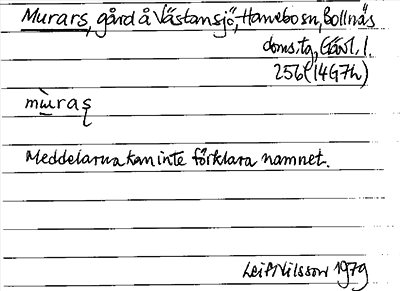 Murars, gård å Västansjö, Hanebo sn, Bollnäs
doms.tg, Gävl. l.
256 (14G7h)
mùras
Meddelarna kan inte förklara namnet.
Leif Nilsson 1979